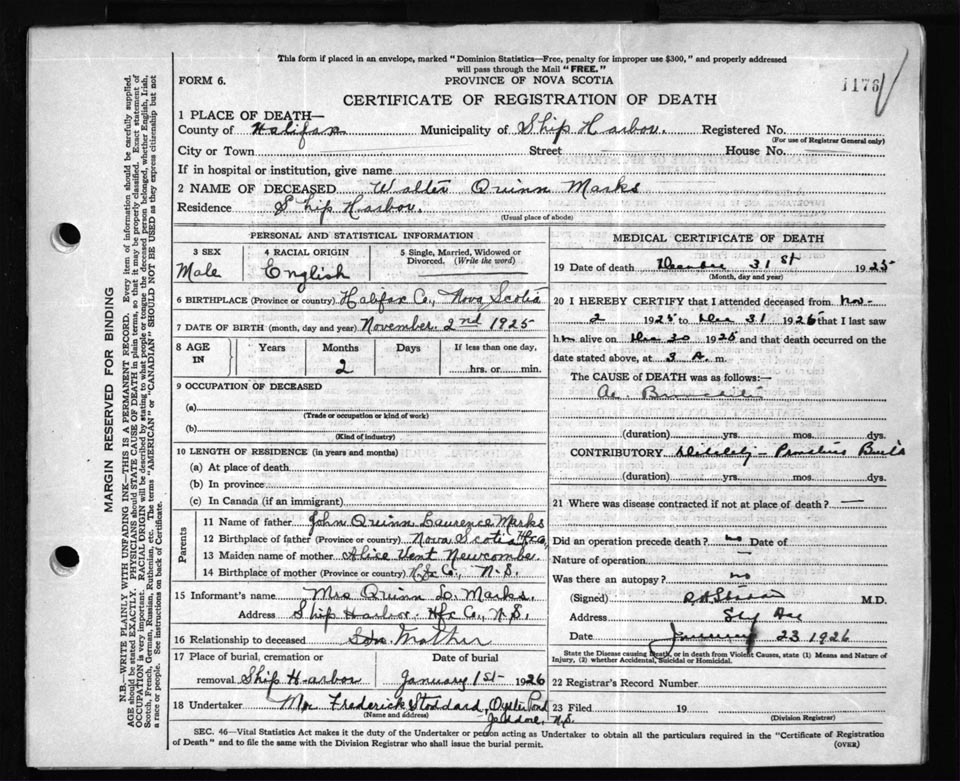 This form if placed in an envelope, marked "Dominion Statistics—Free, penalty for improper use $300," and properly addressed
will pass through the Mail "FREE."
FORM 6.
PROVINCE OF NOVA SCOTIA
1176
CERTIFICATE OF REGISTRATION OF DEATH
1 PLACE OF DEATH—
County of Halifax Municipality of Ship Harbor. Registered No.
(For use of Registrar General only)
City or Town Street House No.
If in hospital or institution, give name
2 NAME OF DECEASED Walter Quinn Marks
Residence Ship Harbor.
(Usual place of abode)
PERSONAL AND STATISTICAL INFORMATION
3 SEX 4 RACIAL ORIGIN 5 Single, Married, Widowed or
Divorced. (Write the word)
Male English
6 BIRTHPLACE (Province or country) Halifax Co., Nova Scotia
7 DATE OF BIRTH (month, day and year) November 2nd 1925
8 AGE IN Years Months Days If less than one day,
2 hrs. or min.
9 OCCUPATION OF DECEASED
(a)
(Trade or occupation or kind of work)
(b)
(Kind of industry)
10 LENGTH OF RESIDENCE (in years and months)
(a) At place of death
(b) In province
(c) In Canada (if an immigrant)
Parents
11 Name of father John Quinn Laurence Marks
12 Birthplace of father (Province or country) Nova Scotia Hfx Co,
13 Maiden name of mother Alice Vent Newcombe.
14 Birthplace of mother (Province or country) Hfx Co., N.S.
15 Informant's name Mrs Quinn L. Marks.
Address Ship Harbor. Hfx Co., N.S.
16 Relationship to deceased Son Mother
17 Place of burial, cremation or Date of burial
removal Ship Harbor January 1st 1926
18 Undertaker Mr. Frederick Stoddard, Oyster Pond
(Name and address) Jeddore, N.S.
MEDICAL CERTIFICATE OF DEATH
19 Date of death 31st 1925
(Month, day and year)
20 I HEREBY CERTIFY that I attended deceased from Nov-
2 1925 to Dec 31 1925 that I last saw
him alive on Dec 20 1925 and that death occurred on
date stated above, at 3 A. m.
The CAUSE of DEATH was as follows:—
Ac. Bronchitis
(duration) yrs. mos. dys.
CONTRIBUTORY Debility —
(duration) yrs. mos. dys.
21 Where was disease contracted if not at place of death? —
Did an operation precede death? no Date of
Nature of operation —
Was there an autopsy? no
(Signed) M.D.
Address
Date January 23 1926
State the Disease causing Death, or in death from Violent Causes, state (1) Means and Nature of
Injury, (2) whether Accidental, Suicidal or Homicidal.
22 Registrar's Record Number
23 Filed 19
(Division Registrar)
SEC. 46—Vital Statistics Act makes it the duty of the Undertaker or person acting as Undertaker to obtain all the particulars required in the "Certificate of Registration
of Death" and to file the same with the Division Registrar who shall issue the burial permit.
(OVER)
MARGIN RESERVED FOR BINDING
N.B.—WRITE PLAINLY WITH UNFADING INK—THIS IS A PERMANENT RECORD. Every item of information should be carefully supplied.
AGE should be stated EXACTLY. PHYSICIANS should STATE CAUSE OF DEATH in plain terms, so that it may be properly classified. Exact statement of
OCCUPATION is very important. RACIAL ORIGIN will be described by stating to what people or tongue the deceased person belonged, whether English, Irish,
Scotch, French, German, Russian, Ruthenian, etc. The terms "AMERICAN" or "CANADIAN" SHOULD NOT BE USED as they express citizenship but not
a race or people. See instructions on back of Certificate.